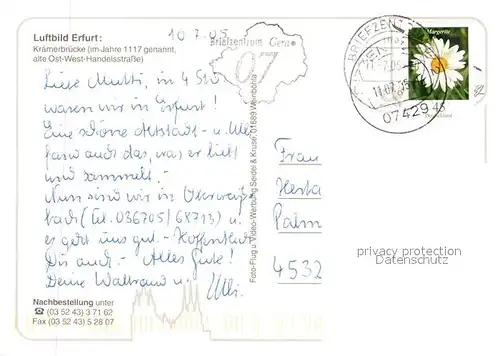 Luftbild Erfurt:
Krämerbrücke (im Jahre 1117 genannt,
alte Ost-West-Handelsstraße)
10.7.05
Briefzentrum Gera
07
BRIEFZEN
07429
Margerite
45
Deutschland
Liebe Mutti, in 4 Std
waren wir in Erfurt!
Eine schöne Altstadt - u. Ulli
fand auch das, was er liebt
und sammelt. -
Nun sind wir in Oberweiß-
bach (Tel. 036705/68713) u.
es geht uns gut. - Hoffentlich
Dir auch. - Alles Gute!
Deine Waltraud u. Ulli.
Frau
Herta
Palm
4532
privacy protection
Datenschutz
Foto-Flug u. Video-Werbung Seidel & Kruse, 01689 Weinböhla
Nachbestellung unter
☎ (03 52 43) 3 71 62
Fax (03 52 43) 5 28 07